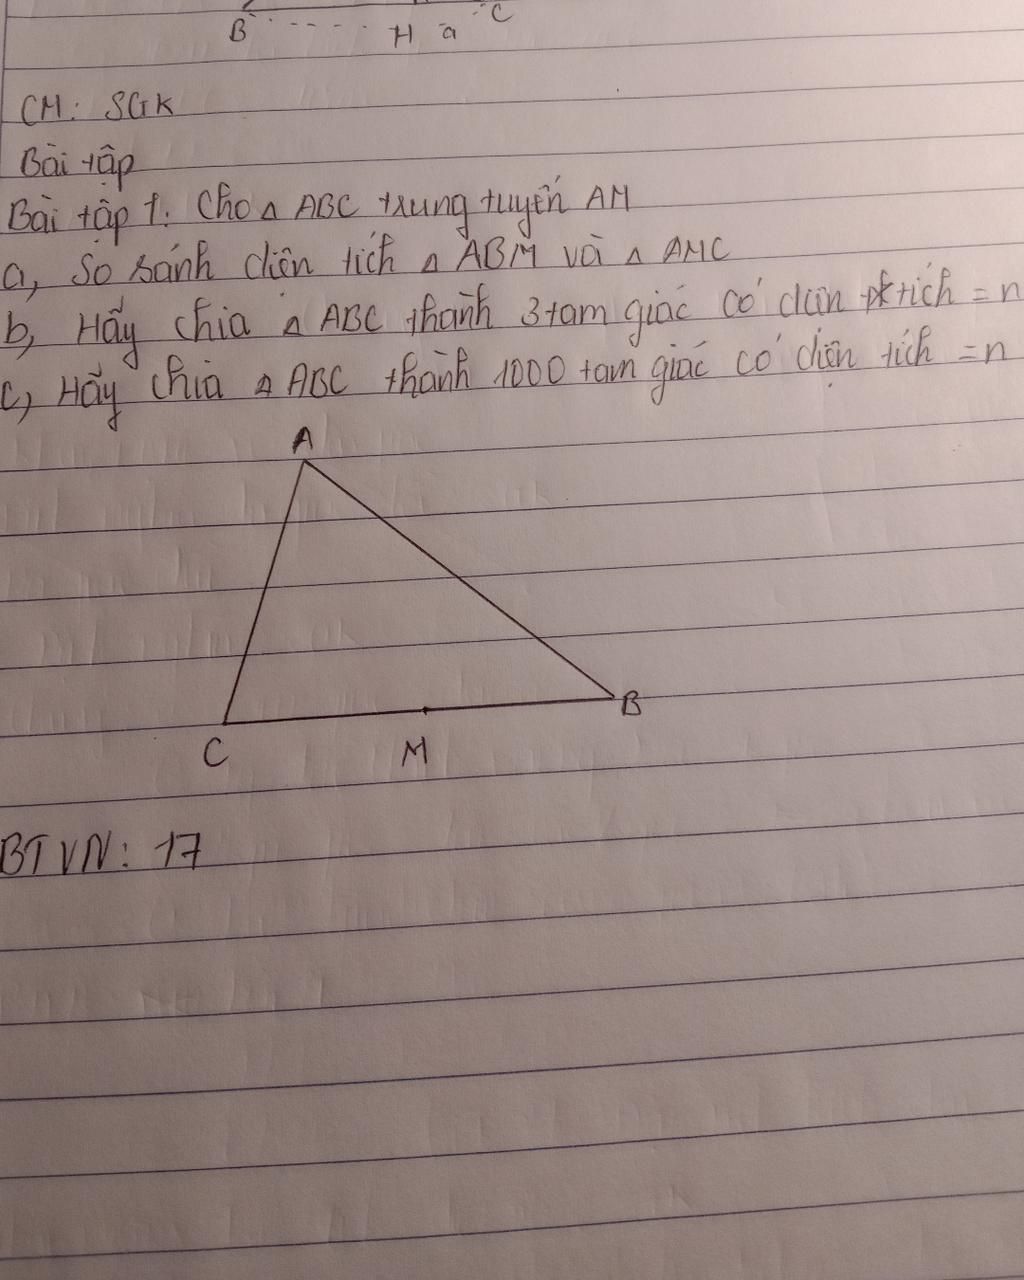 B H a C
CM: SGK
Bài tập
Bài tập 1: Cho △ ABC trung tuyến AM
a, So sánh diện tích △ ABM và △ AMC
b, Hãy chia △ ABC thành 3 tam giác có diện tích = n
c, Hãy chia △ ABC thành 1000 tam giác có diện tích = n
A
B
C M
BTVN: 17